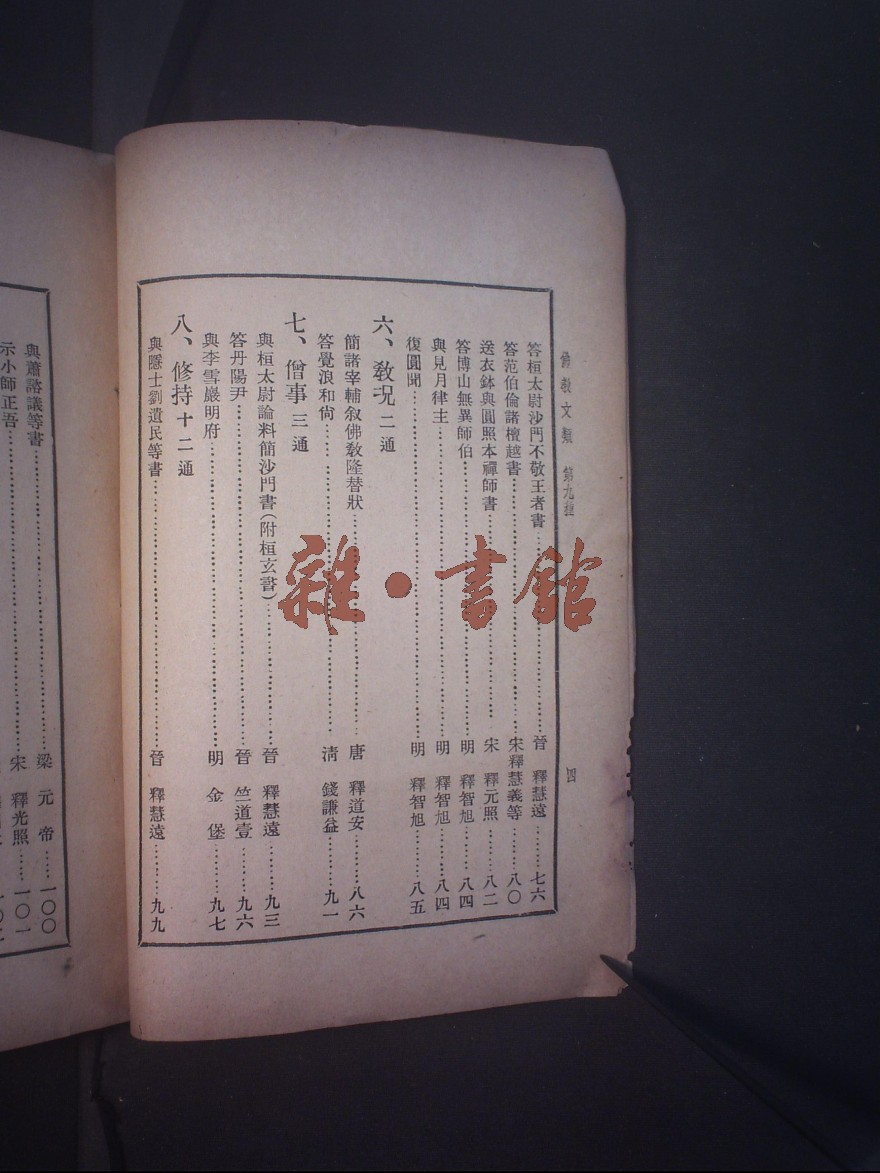 佛教文類 第九種
四
答桓太尉沙門不敬王者書……晉 釋慧遠……七六
答范伯倫諸檀越書……宋釋慧義等……八〇
送衣鉢與圓照本禪師書……宋 釋元照……八二
答博山無異師伯……明 釋智旭……八四
與見月律主……明 釋智旭……八四
復圓聞……明 釋智旭……八五
六、教況 二通
簡諸宰輔叙佛教隆替狀……唐 釋道安……八六
答覺浪和尙……清 錢謙益……九一
七、僧事 三通
與桓太尉論料簡沙門書(附桓玄書)……晉 釋慧遠……九三
答丹陽尹……晉 竺道壹……九六
與李雪巖明府……明 金堡……九七
八、修持 十二通
與隱士劉遺民等書……晉 釋慧遠……九九
與蕭諮議等書……梁 元帝……一〇〇
示小師正吾……宋 釋光照……一〇一
雜·書館